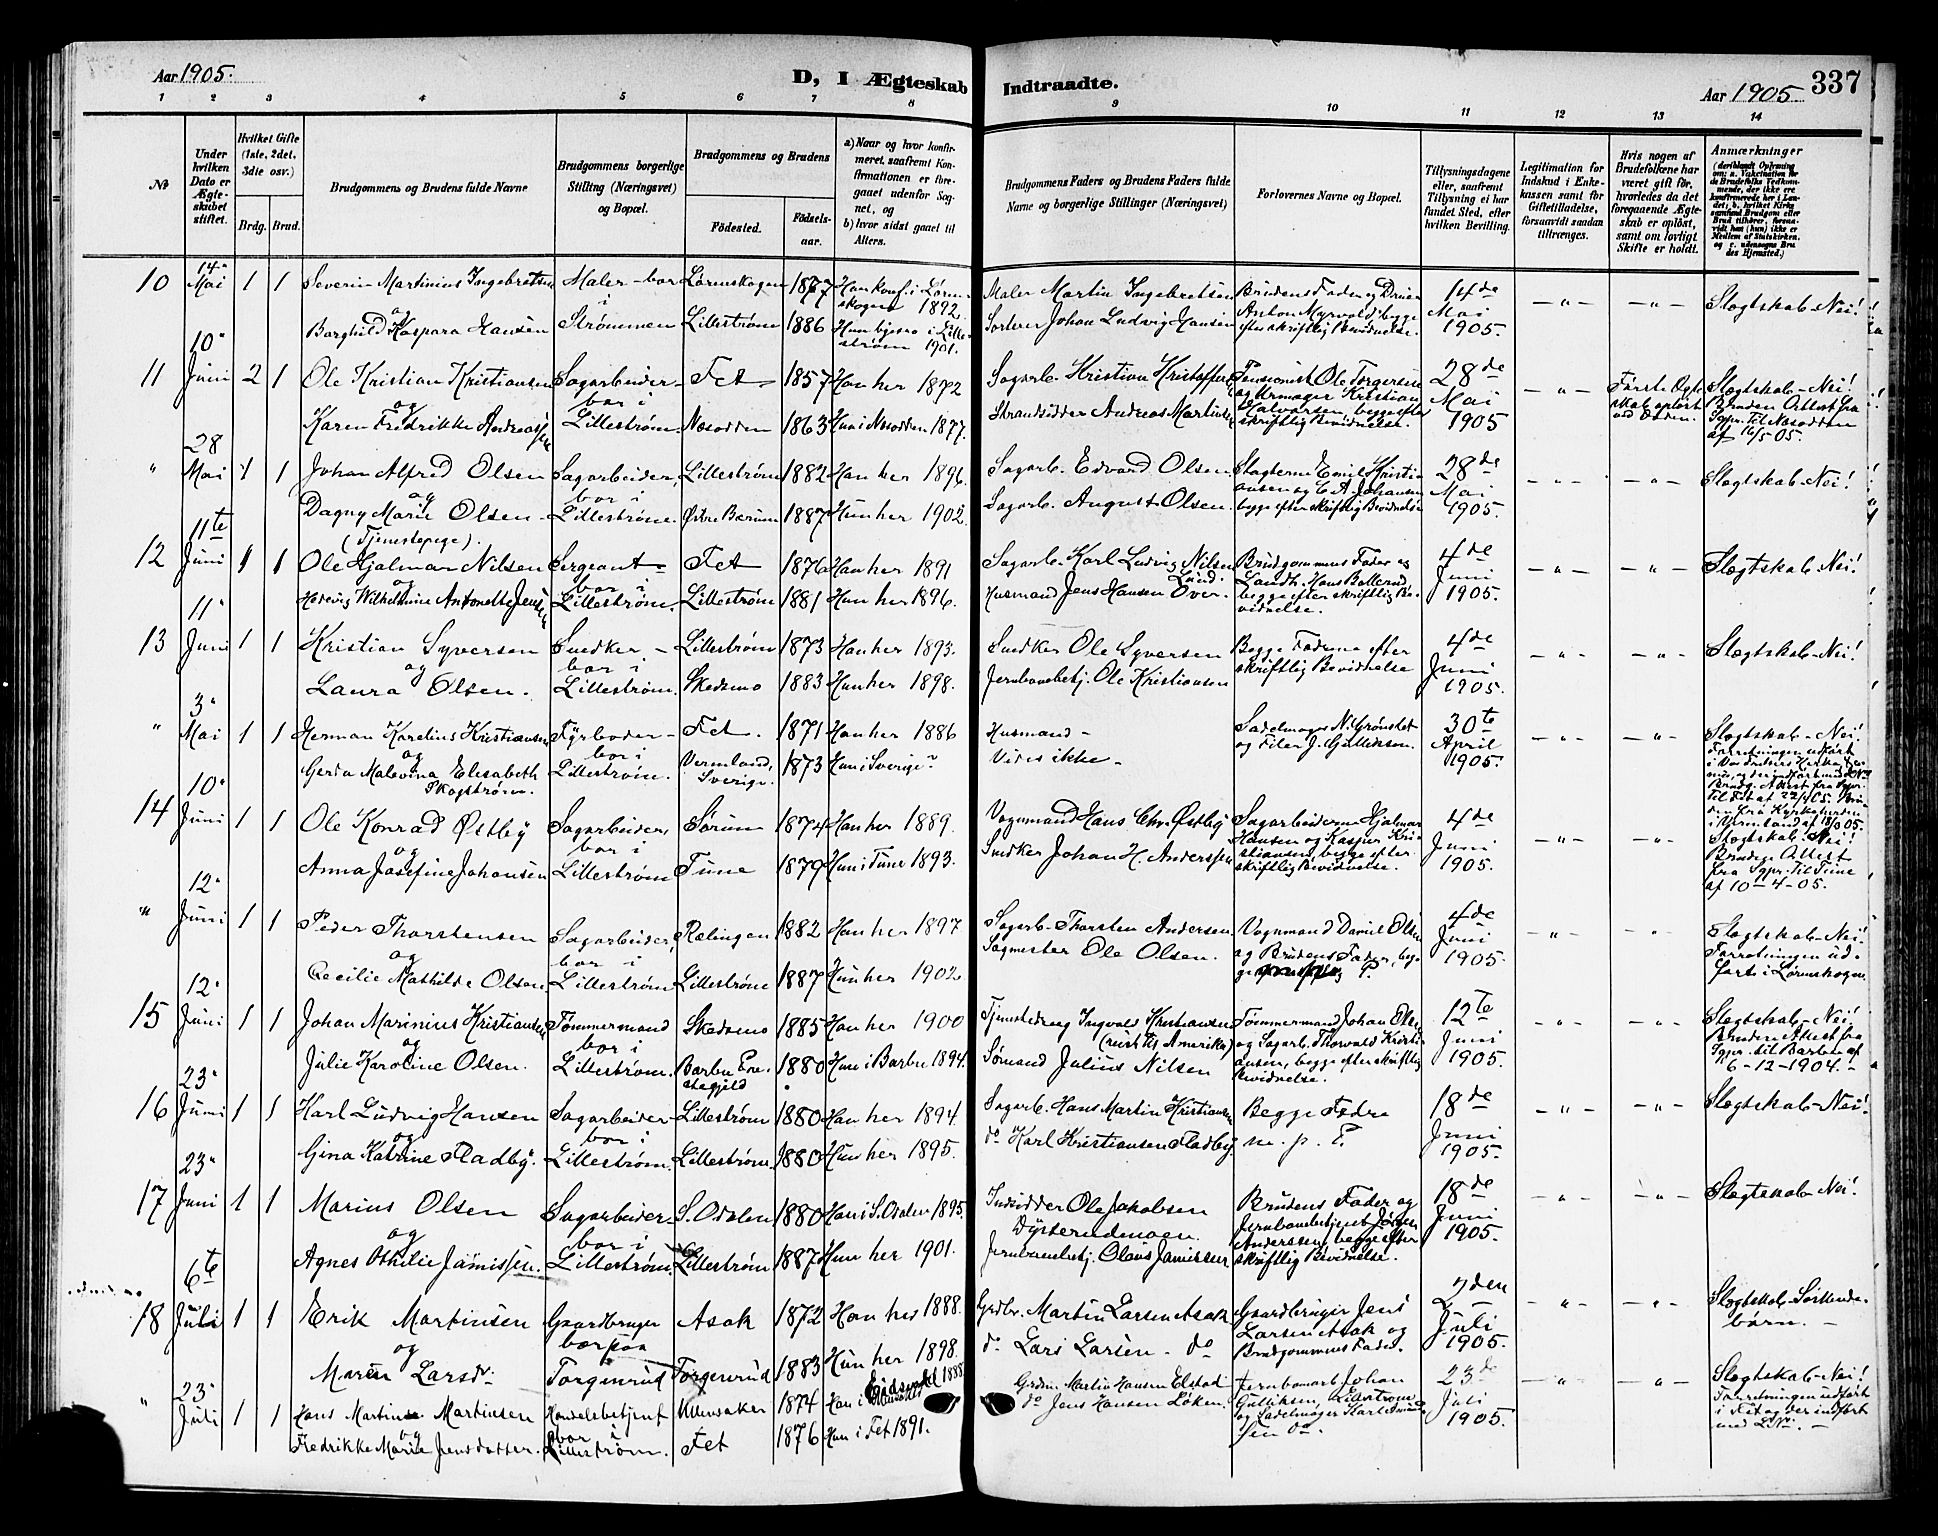 Aar 1905.
D, I Ægteskab
Indtraadte.
Aar 1905.
337
1 2 3 4 5 6 7 8 9 10 11 12 13 14
№
Under hvilken Dato er Ægteskabet stiftet.
Hvilket Gifte (1ste, 2det, 3die osv.)
Brdg. Brud.
Brudgommens og Brudens fulde Navne
Brudgommens borgerlige Stilling (Næringsvei) og Bopæl.
Brudgommens og Brudens
Födested.
Födsels-aar.
a) Naar og hvor konfirmeret, saafremt Konfirmationen er foregaaet udenfor Sognet, og
b) hvor sidst gaaet til Alters.
Brudgommens Faders og Brudens Faders fulde Navne og borgerlige Stillinger (Næringsvei)
Forlovernes Navne og Bopæl.
Tillysningsdagene eller, saafremt Tillysning ei har fundet Sted, efter hvilken Bevilling.
Legitimation for Indskud i Enkekassen samt for Giftetilladelse, forsaavidt saadan tiltrænges.
Hvis nogen af Brudefolkene har været gift för, hvorledes da det foregaaende Ægteskab er oplöst, samt om lovligt Skifte er holdt.
Anmærkninger
(deriblandt Oplysning om: a. Vakcination for de Brudefolks Vedkommende, der ikke ere konfirmerede her i Landet; b. hvilket Kirkesamfund Brudgom eller Brud tilhører, forsaavidt han (hun) ikke er Medlem af Statskirken, og c. udensogns Brudes Hjemsted.)
10 14" Mai 1 1 Severin Martinius Ingebretsen Maler - bor Lørenskogen 1877 Han konf. i Lørenskogen 1892. Maler Martin Ingebretsen Brudens Fader og 14de Mai 1905. Slægtskab - Nei!
og i
Borghild Kaspara Hansen Strømmen Lillestrøm 1886 Hun i Lillestrøm 1901. Sorterer Johan Ludvig Hansen Anton Myrvold, begge efter skriftlig Bevidnelse.
11 10" Juni 2 1 Ole Kristian Kristiansen Sagarbeider - Fet 1857 Han her 1872 Sagarb. Kristian Kristoffersen Pensionist Ole Torgersen og Urmager Kristian Halvorsen, begge efter skriftlig Bevidnelse. 28de Mai 1905 Første Ægteskab opløst ved Døden. Slægtskab - Nei! Bruden Attest fra Sgpr. til Nesodden af 16/5 05.
og bor i
Karen Fredrikke Andreassen Lillestrøm. Nesodden 1863 Hun i Nesodden 1877. Strandsidder Andreas Martinsen
" 28 Mai 1 1 Johan Alfred Olsen Sagarbeider, Lillestrøm 1882 Han her 1896. Sagarb. Edvard Olsen. Slagterne Emil Kristiansen og C. A. Johansen begge efter skriftlig Bevidnelse 28de Mai 1905. Slægtskab - Nei!
og bor i
Dagny Marie Olsen - Lillestrøm. Østre Bærum 1887 Hun her 1902. Sagarb. August Olsen.
(Tjenestepige).
12 11te Juni 1 1 Ole Hjalmar Nilsen Sergeant - Fet 1876 Han her 1891 Sagarb. Karl Ludvig Nilsen Brudgommens Fader og Landh. Hans Ballerud, begge efter skriftlig Bevidnelse. 4de Juni 1905. Slægtskab - Nei!
og bor i Lund.
Hedevig Wilhelmine Antonette Jensen Lillestrøm. Lillestrøm 1881 Hun her 1896. Husmand Jens Hansen Over.
13 11" Juni 1 1 Kristian Syversen Snedker - Lillestrøm 1873 Han her 1893. Snedker Ole Syversen Begge Fædrene efter skriftlig Bevidnelse 4de Juni 1905. Slægtskab - Nei!
og bor i
Laura Olsen. Lillestrøm. Skedsmo 1883 Hun her 1898. Jernbanebetj. Ole Kristiansen
" 3" Mai 1 1 Herman Karelius Kristiansen Fyrbøder - Fet. 1871 Han her 1886 Husmand - Sadelmager N. Grønstet og Filer J. Gulliksen. 30te April 1905. Slægtskab - Nei!
og bor i
Gerda Malovina Elisabeth Skogstrøm. Lillestrøm. Vermland, Sverige. 1873 Hun i Sverige " Vides ikke - Forretningen udført
14 10" Juni 1 1 Ole Konrad Østby Sagarbeider, Sørum 1874 Han her 1889. Vognmand Hans Chr. Østby Sagarbeiderne Hjalmar Hansen og Kaspar Kristiansen, begge efter skriftlig Bevidnelse. 4de Juni 1905. Slægtskab - Nei! Brudens Attest fra Sgpr. til Tune af 10-4-05.
og bor i
Anna Josefine Johansen Lillestrøm Tune 1879 Hun i Tune 1893. Snedker Johan H. Anderssen
" 12" Juni 1 1 Peder Thorstensen Sagarbeider, Rælingen 1882 Han her 1897 Sagarb. Thorsten Andersen Vognmand Daniel Olsen og Brudens Fader, begge P. 4de Juni 1905. Slægtskab - Nei! Forretningen udført i Lørenskogen
og bor i
Cecilie Mathilde Olsen Lillestrøm Lillestrøm 1887 Hun her 1902 Sagmester Ole Olsen.
15 12" Juni 1 1 Johan Marinius Kristiansen Tømmermand Skedsmo 1885 Han her 1900 Tjenestedreng Ingvald Kristiansen (reist til Amerika) Tømmermand Johan Olsen og Sagarb. Thorvald Kristiansen, begge efter skriftlig Bevidnelse. 12te Juni 1905. Slægtskab - Nei! Brudens Attest fra Sgpr. til Barbu af 6-12-1904. -
og bor i
Julie Karoline Olsen. Lillestrøm. Barbu Præstegjeld 1880 Hun i Barbu 1894. Sømand Julius Nilsen
16 23" Juni 1 1 Karl Ludvig Hansen Sagarbeider - Lillestrøm 1880 Han her 1894. Sagarb. Hans Martin Kristiansen Begge Fædre m. p. P. 18de Juni 1905. Slægtskab - Nei!
og bor i
Gina Katrine Fladby. Lillestrøm. Lillestrøm. 1880 Hun her 1895. do Karl Kristiansen Fladby
17 23" Juni 1 1 Marius Olsen Sagarbeider - S. Odalen 1880 Han i S. Odalen 1895. Indsidder Ole Jakobsen Dysterudmoen. Brudens Fader og Jernbanebetjent Jørgen Anderssen, begge efter skriftlig Bevidnelse. 18de Juni 1905. Slægtskab - Nei!
og bor i
Agnes Othilie Jamissen. Lillestrøm. Lillestrøm 1887 Hun her 1901. Jernbanebetj. Olaus Jamissen
18 6te Juli 1 1 Erik Martinsen Gaardbruger Asak 1872 Han her 1888. Grdbr. Martin Larsen Asak Gaardbruger Jens Larsen Asak og Brudgommens Fader. 2den Juli 1905. Slægtskab - Søskendebørn. -
og bor paa
Maren Larsdr. Torgenrud Torgenrud 1883 Hun her 1898. do Lars Larsen - do
" 23" Juli 1 1 Hans Martinse Martinsen Handelsbetjent Ullensaker 1874 Han i Eidsvold 1888 Grdm. Martin Hansen Elstad Jernbanearb. Johan Gulliksen, Lillestrøm og Sadelmager Karl sen do. 23de Juli 1905. Slægtskab - Nei! Forretningen udført i Fet og der indført med L. Nr. -
og bor i
Fredrikke Marie Jensdatter. Lillestrøm. Fet 1876 Hun i Fet 1891. do Jens Hansen Løken.